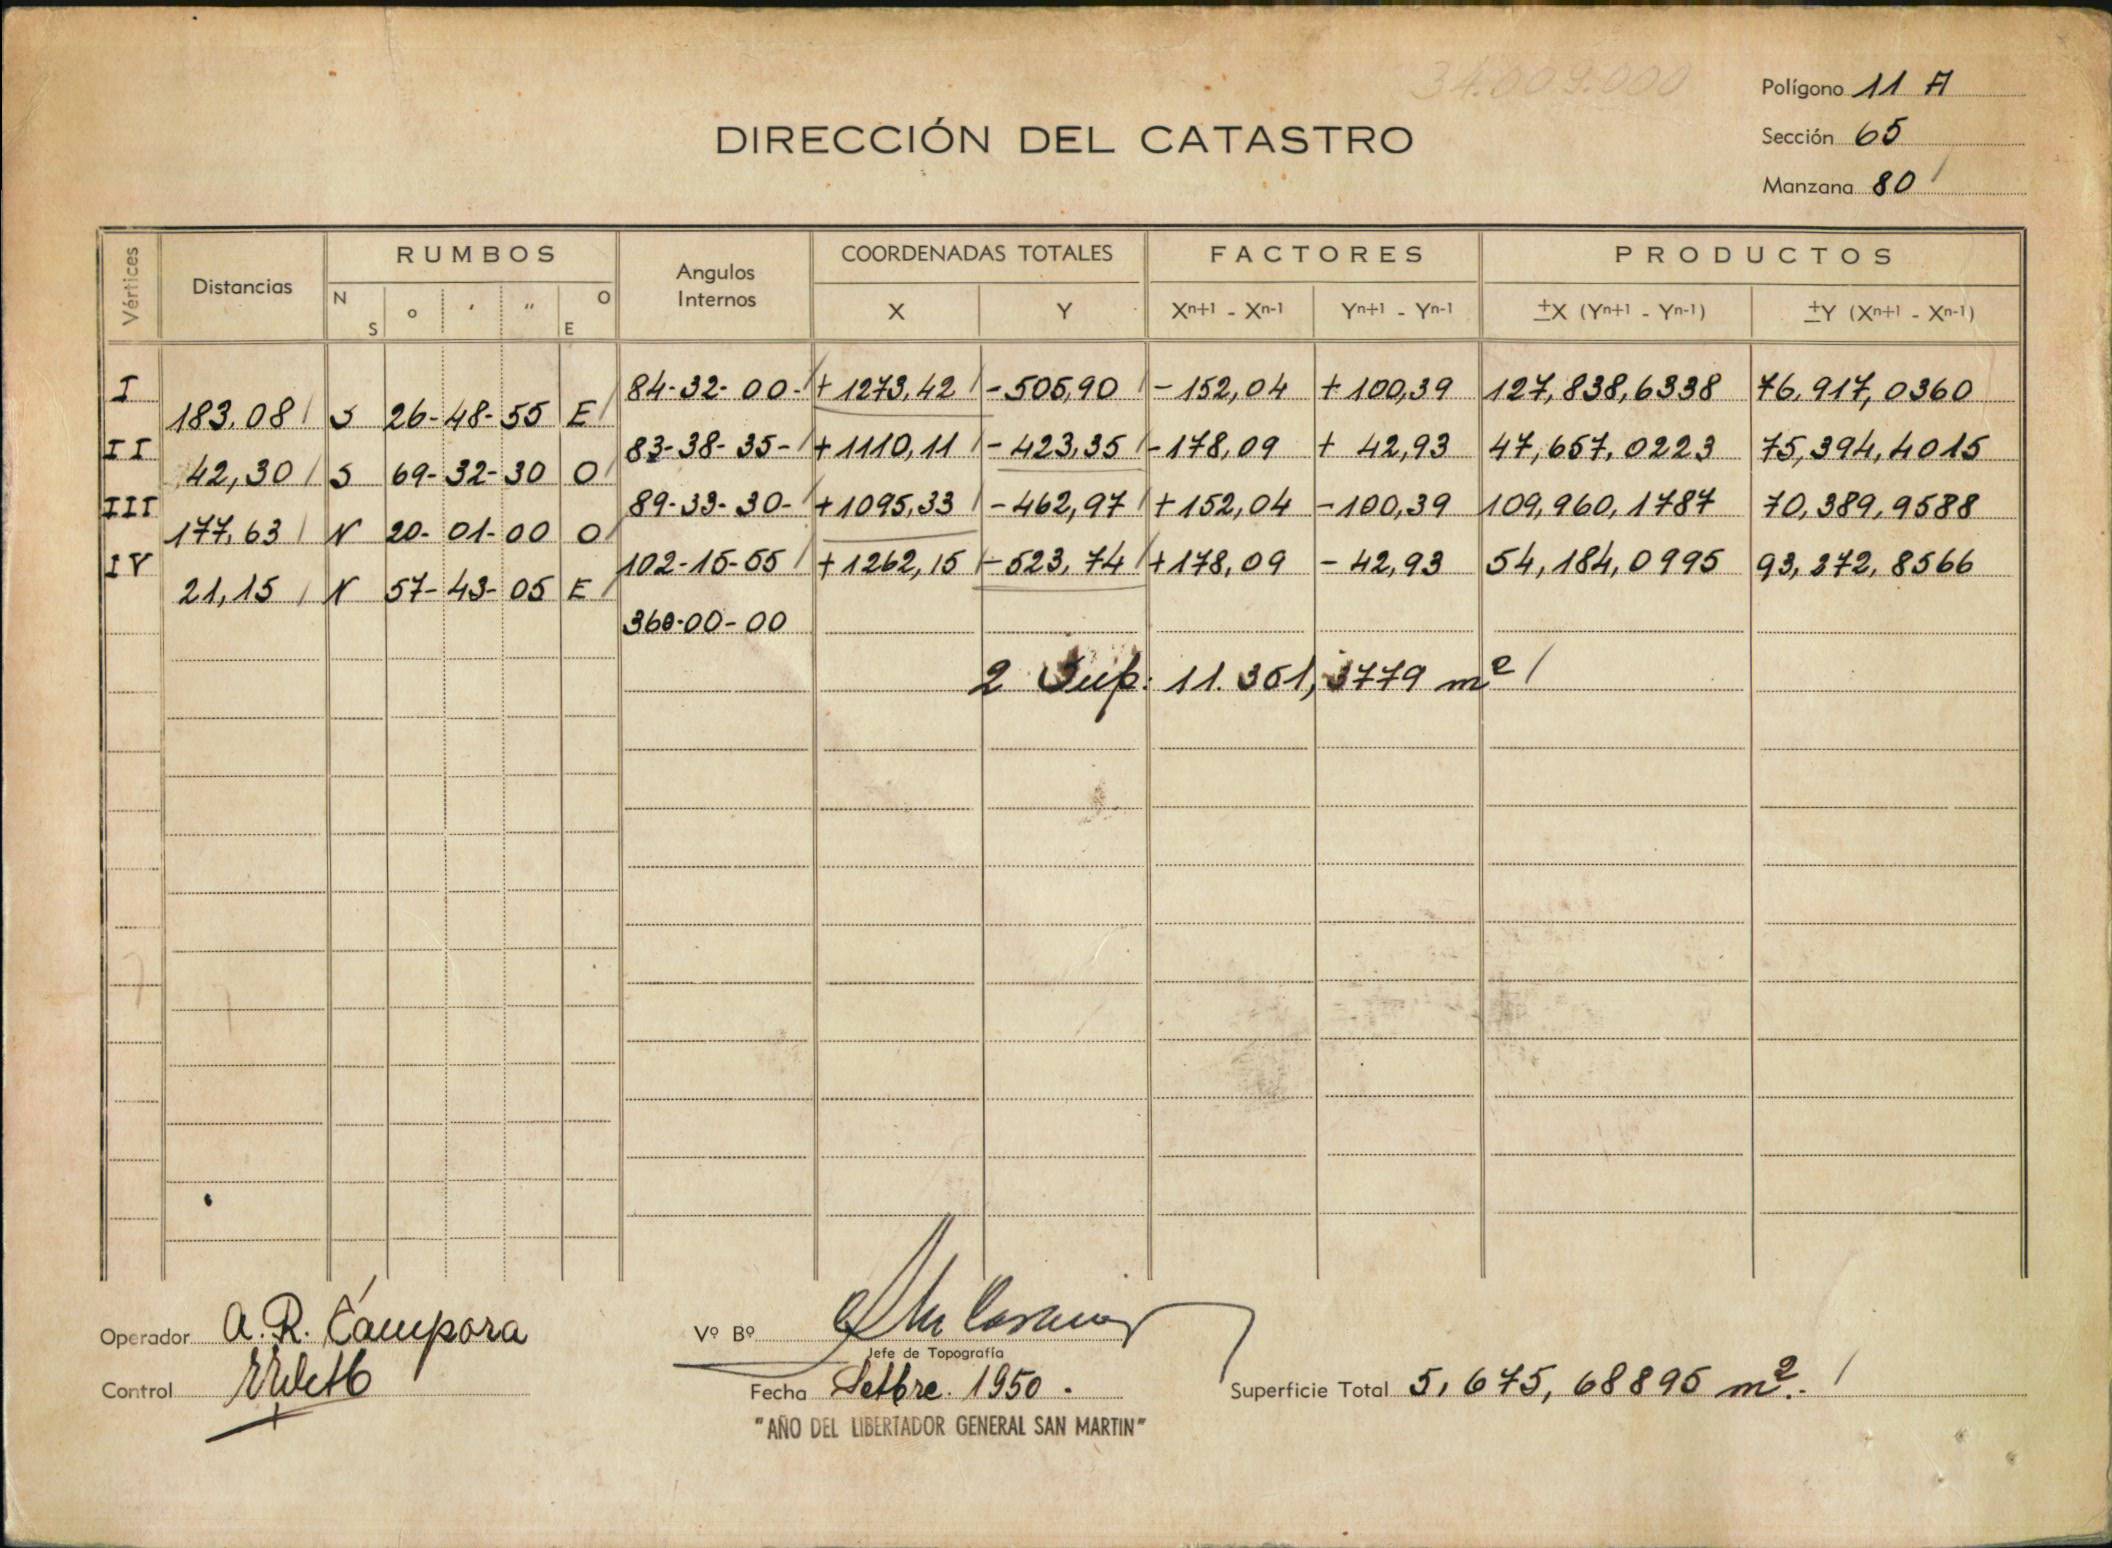 34.009.000
Polígono 11 A
DIRECCIÓN DEL CATASTRO
Sección 65
Manzana 80
Vértices Distancias RUMBOS Angulos Internos COORDENADAS TOTALES FACTORES PRODUCTOS
N S o ′ ″ O E X Y Xn+1 - Xn-1 Yn+1 - Yn-1 ±X (Yn+1 - Yn-1) ±Y (Xn+1 - Xn-1)
I 84-32-00- +1273,42 -505,90 -152,04 +100,39 127,838,6338 76,917,0360
183,08 S 26-48-55 E
II 83-38-35- +1110,11 -423,35 -178,09 + 42,93 47,657,0223 75,394,4015
42,30 S 69-32-30 O
III 89-33-30- +1095,33 -462,97 +152,04 -100,39 109,960,1787 70,389,9588
177,63 N 20-01-00 O
IV 102-15-55 +1262,15 -523,74 +178,09 - 42,93 54,184,0995 93,272,8566
21,15 N 57-43-05 E
360-00-00
2 Sup: 11.351,3779 m²
Operador A. R. Cámpora
Vº Bº
Jefe de Topografía
Control
Fecha Setbre. 1950.
Superficie Total 5,675,68895 m².-
"AÑO DEL LIBERTADOR GENERAL SAN MARTIN"